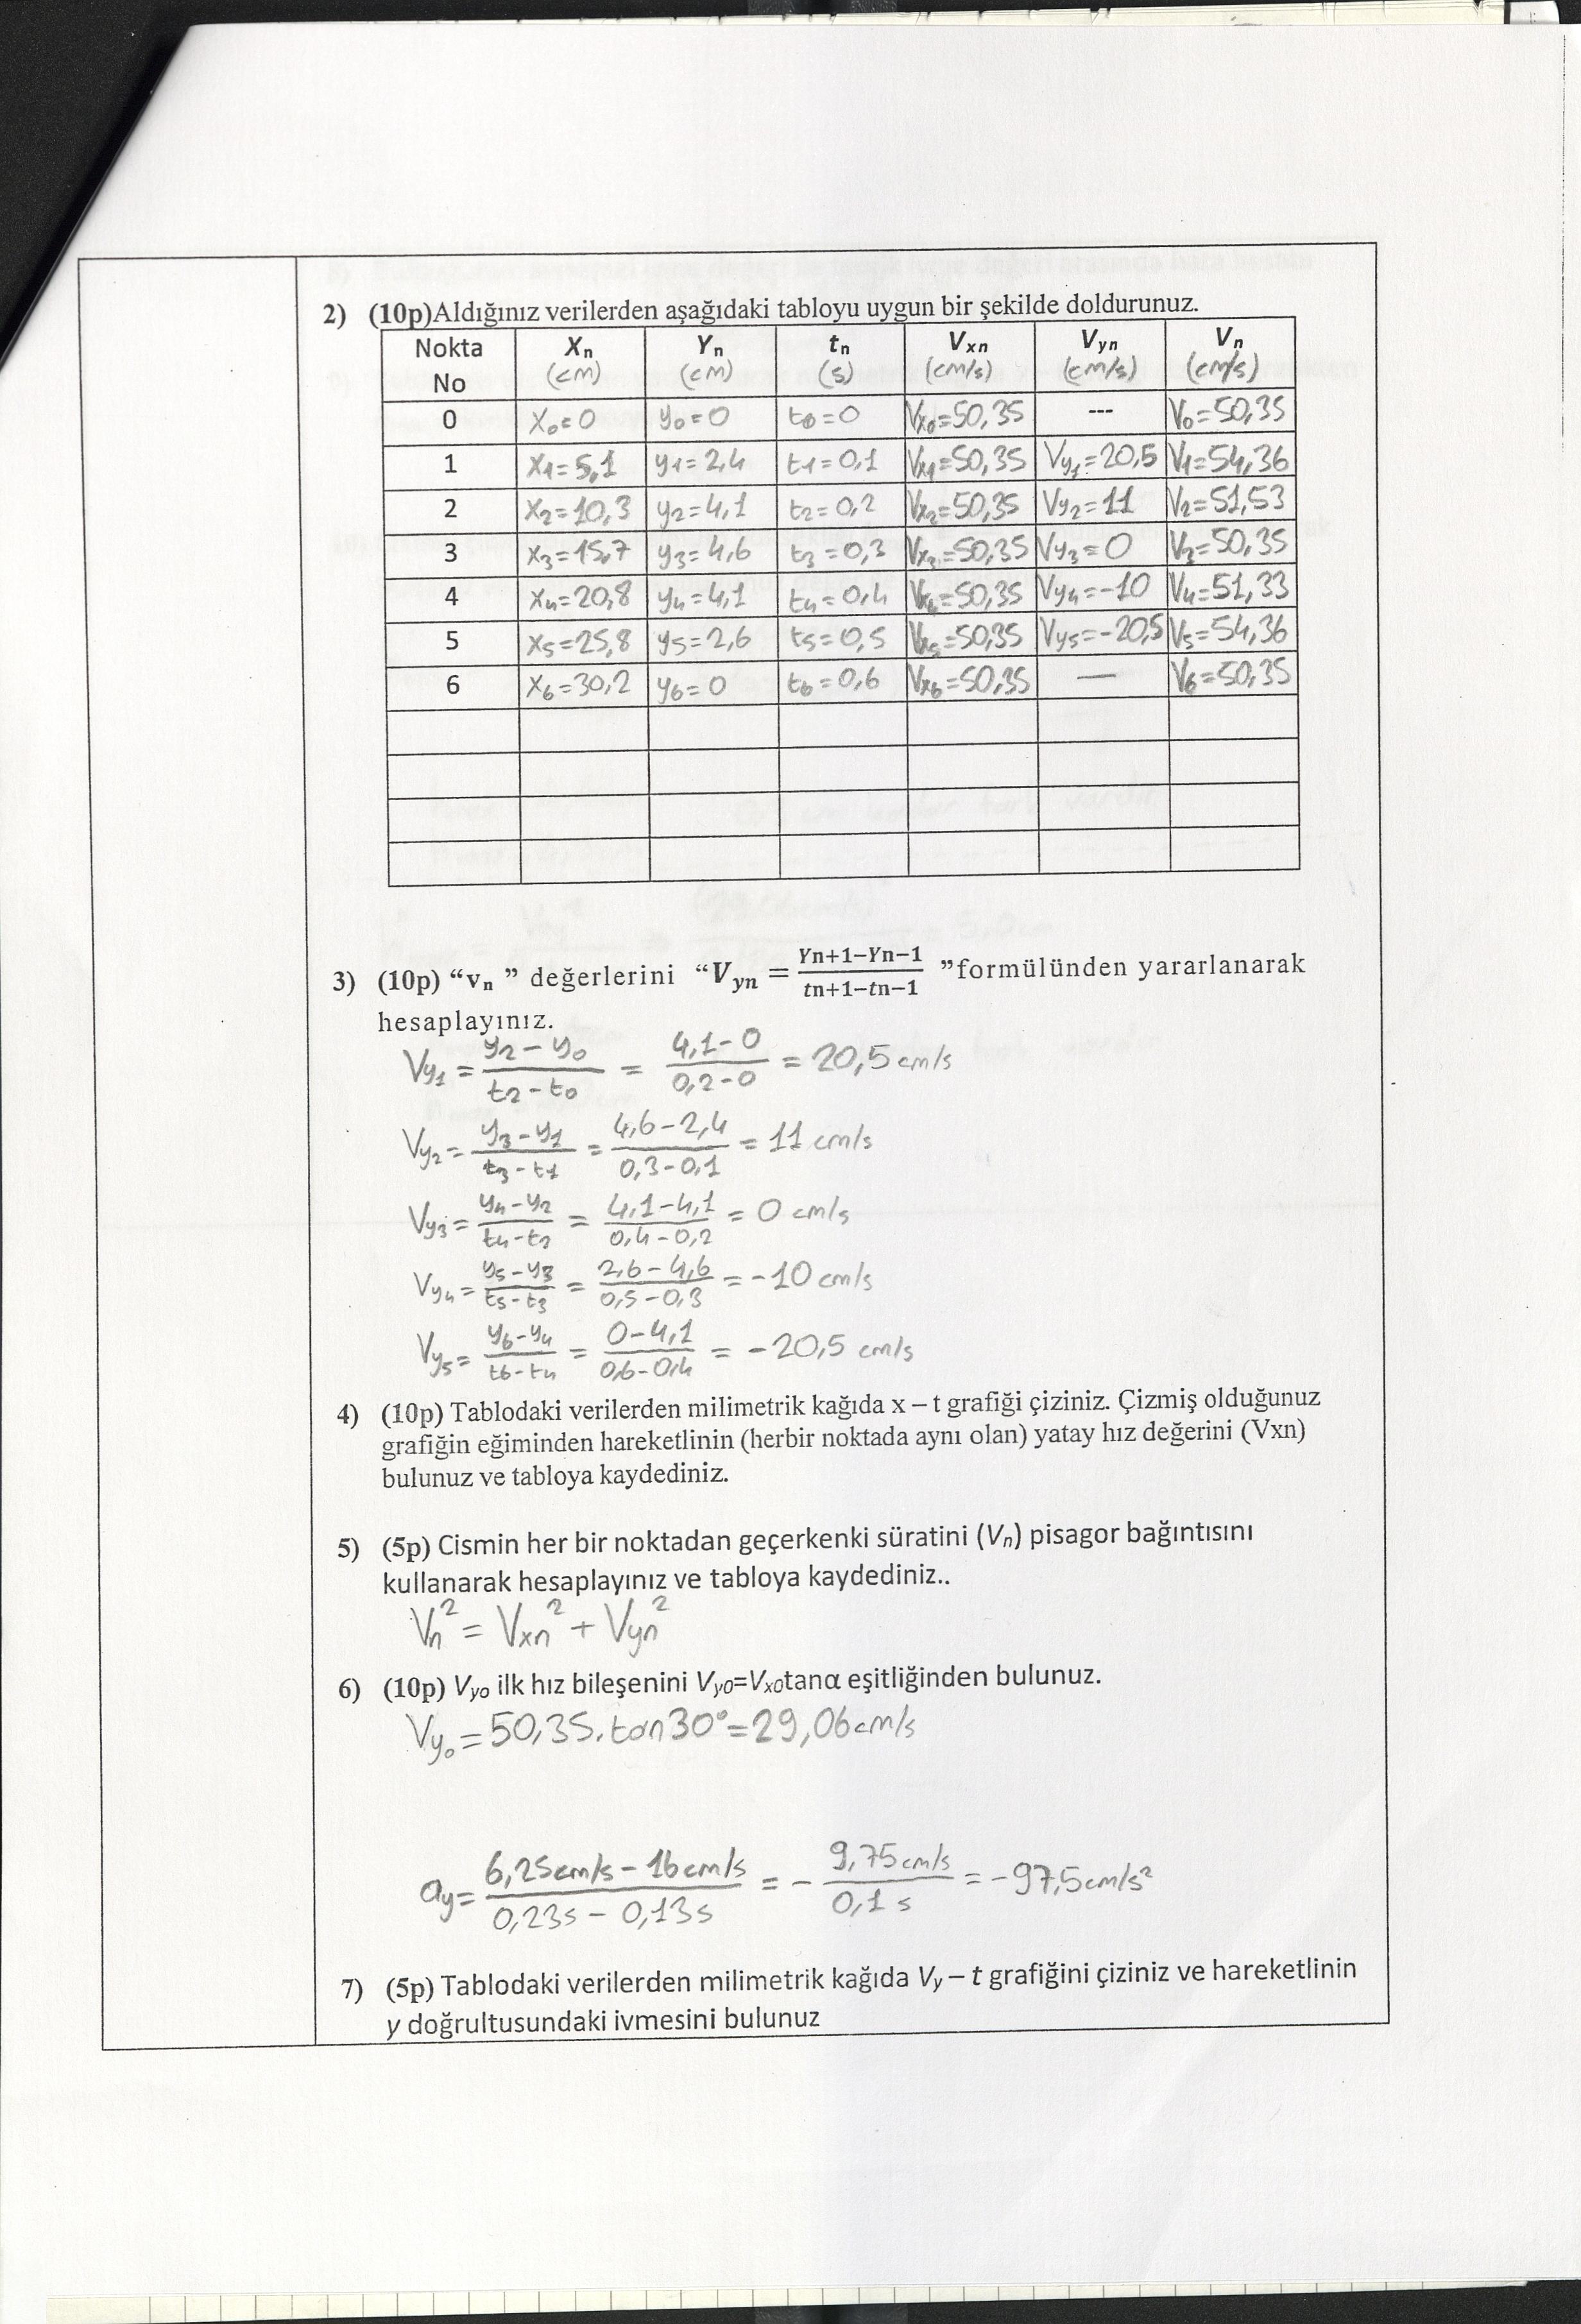 2) (10p)Aldığınız verilerden aşağıdaki tabloyu uygun bir şekilde doldurunuz.
Nokta No Xn (cm) Yn (cm) tn (s) Vxn (cm/s) Vyn (cm/s) Vn (cm/s)
0 X0=0 y0=0 t0=0 Vx0=50,35 --- V0=50,35
1 X1=5,1 y1=2,4 t1=0,1 Vx1=50,35 Vy1=20,5 V1=54,36
2 X2=10,3 y2=4,1 t2=0,2 Vx2=50,35 Vy2=11 V2=51,53
3 X3=15,7 y3=4,6 t3=0,3 Vx3=50,35 Vy3=0 V3=50,35
4 X4=20,8 y4=4,1 t4=0,4 Vx4=50,35 Vy4=-10 V4=51,33
5 X5=25,8 y5=2,6 t5=0,5 Vx5=50,35 Vy5=-20,5 V5=54,36
6 X6=30,2 y6=0 t6=0,6 Vx6=50,35 — V6=50,35
3) (10p) “vn ” değerlerini “Vyn = (Yn+1−Yn−1)/(tn+1−tn−1) ”formülünden yararlanarak
hesaplayınız.
Vy1 = (y2-y0)/(t2-t0) = (4,1-0)/(0,2-0) = 20,5 cm/s
Vy2 = (y3-y1)/(t3-t1) = (4,6-2,4)/(0,3-0,1) = 11 cm/s
Vy3 = (y4-y2)/(t4-t2) = (4,1-4,1)/(0,4-0,2) = 0 cm/s
Vy4 = (y5-y3)/(t5-t3) = (2,6-4,6)/(0,5-0,3) = -10 cm/s
Vy5 = (y6-y4)/(t6-t4) = (0-4,1)/(0,6-0,4) = -20,5 cm/s
4) (10p) Tablodaki verilerden milimetrik kağıda x – t grafiği çiziniz. Çizmiş olduğunuz
grafiğin eğiminden hareketlinin (herbir noktada aynı olan) yatay hız değerini (Vxn)
bulunuz ve tabloya kaydediniz.
5) (5p) Cismin her bir noktadan geçerkenki süratini (Vn) pisagor bağıntısını
kullanarak hesaplayınız ve tabloya kaydediniz..
Vn² = Vxn² + Vyn²
6) (10p) Vyo ilk hız bileşenini Vyo=Vxotanα eşitliğinden bulunuz.
Vy0 = 50,35.tan30°=29,06cm/s
ay = (6,25cm/s - 16cm/s)/(0,23s - 0,13s) = - (9,75cm/s)/(0,1 s) = -97,5cm/s²
7) (5p) Tablodaki verilerden milimetrik kağıda Vy – t grafiğini çiziniz ve hareketlinin
y doğrultusundaki ivmesini bulunuz